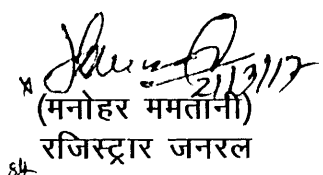 21/3/17
(मनोहर ममतानी)
रजिस्ट्रार जनरल